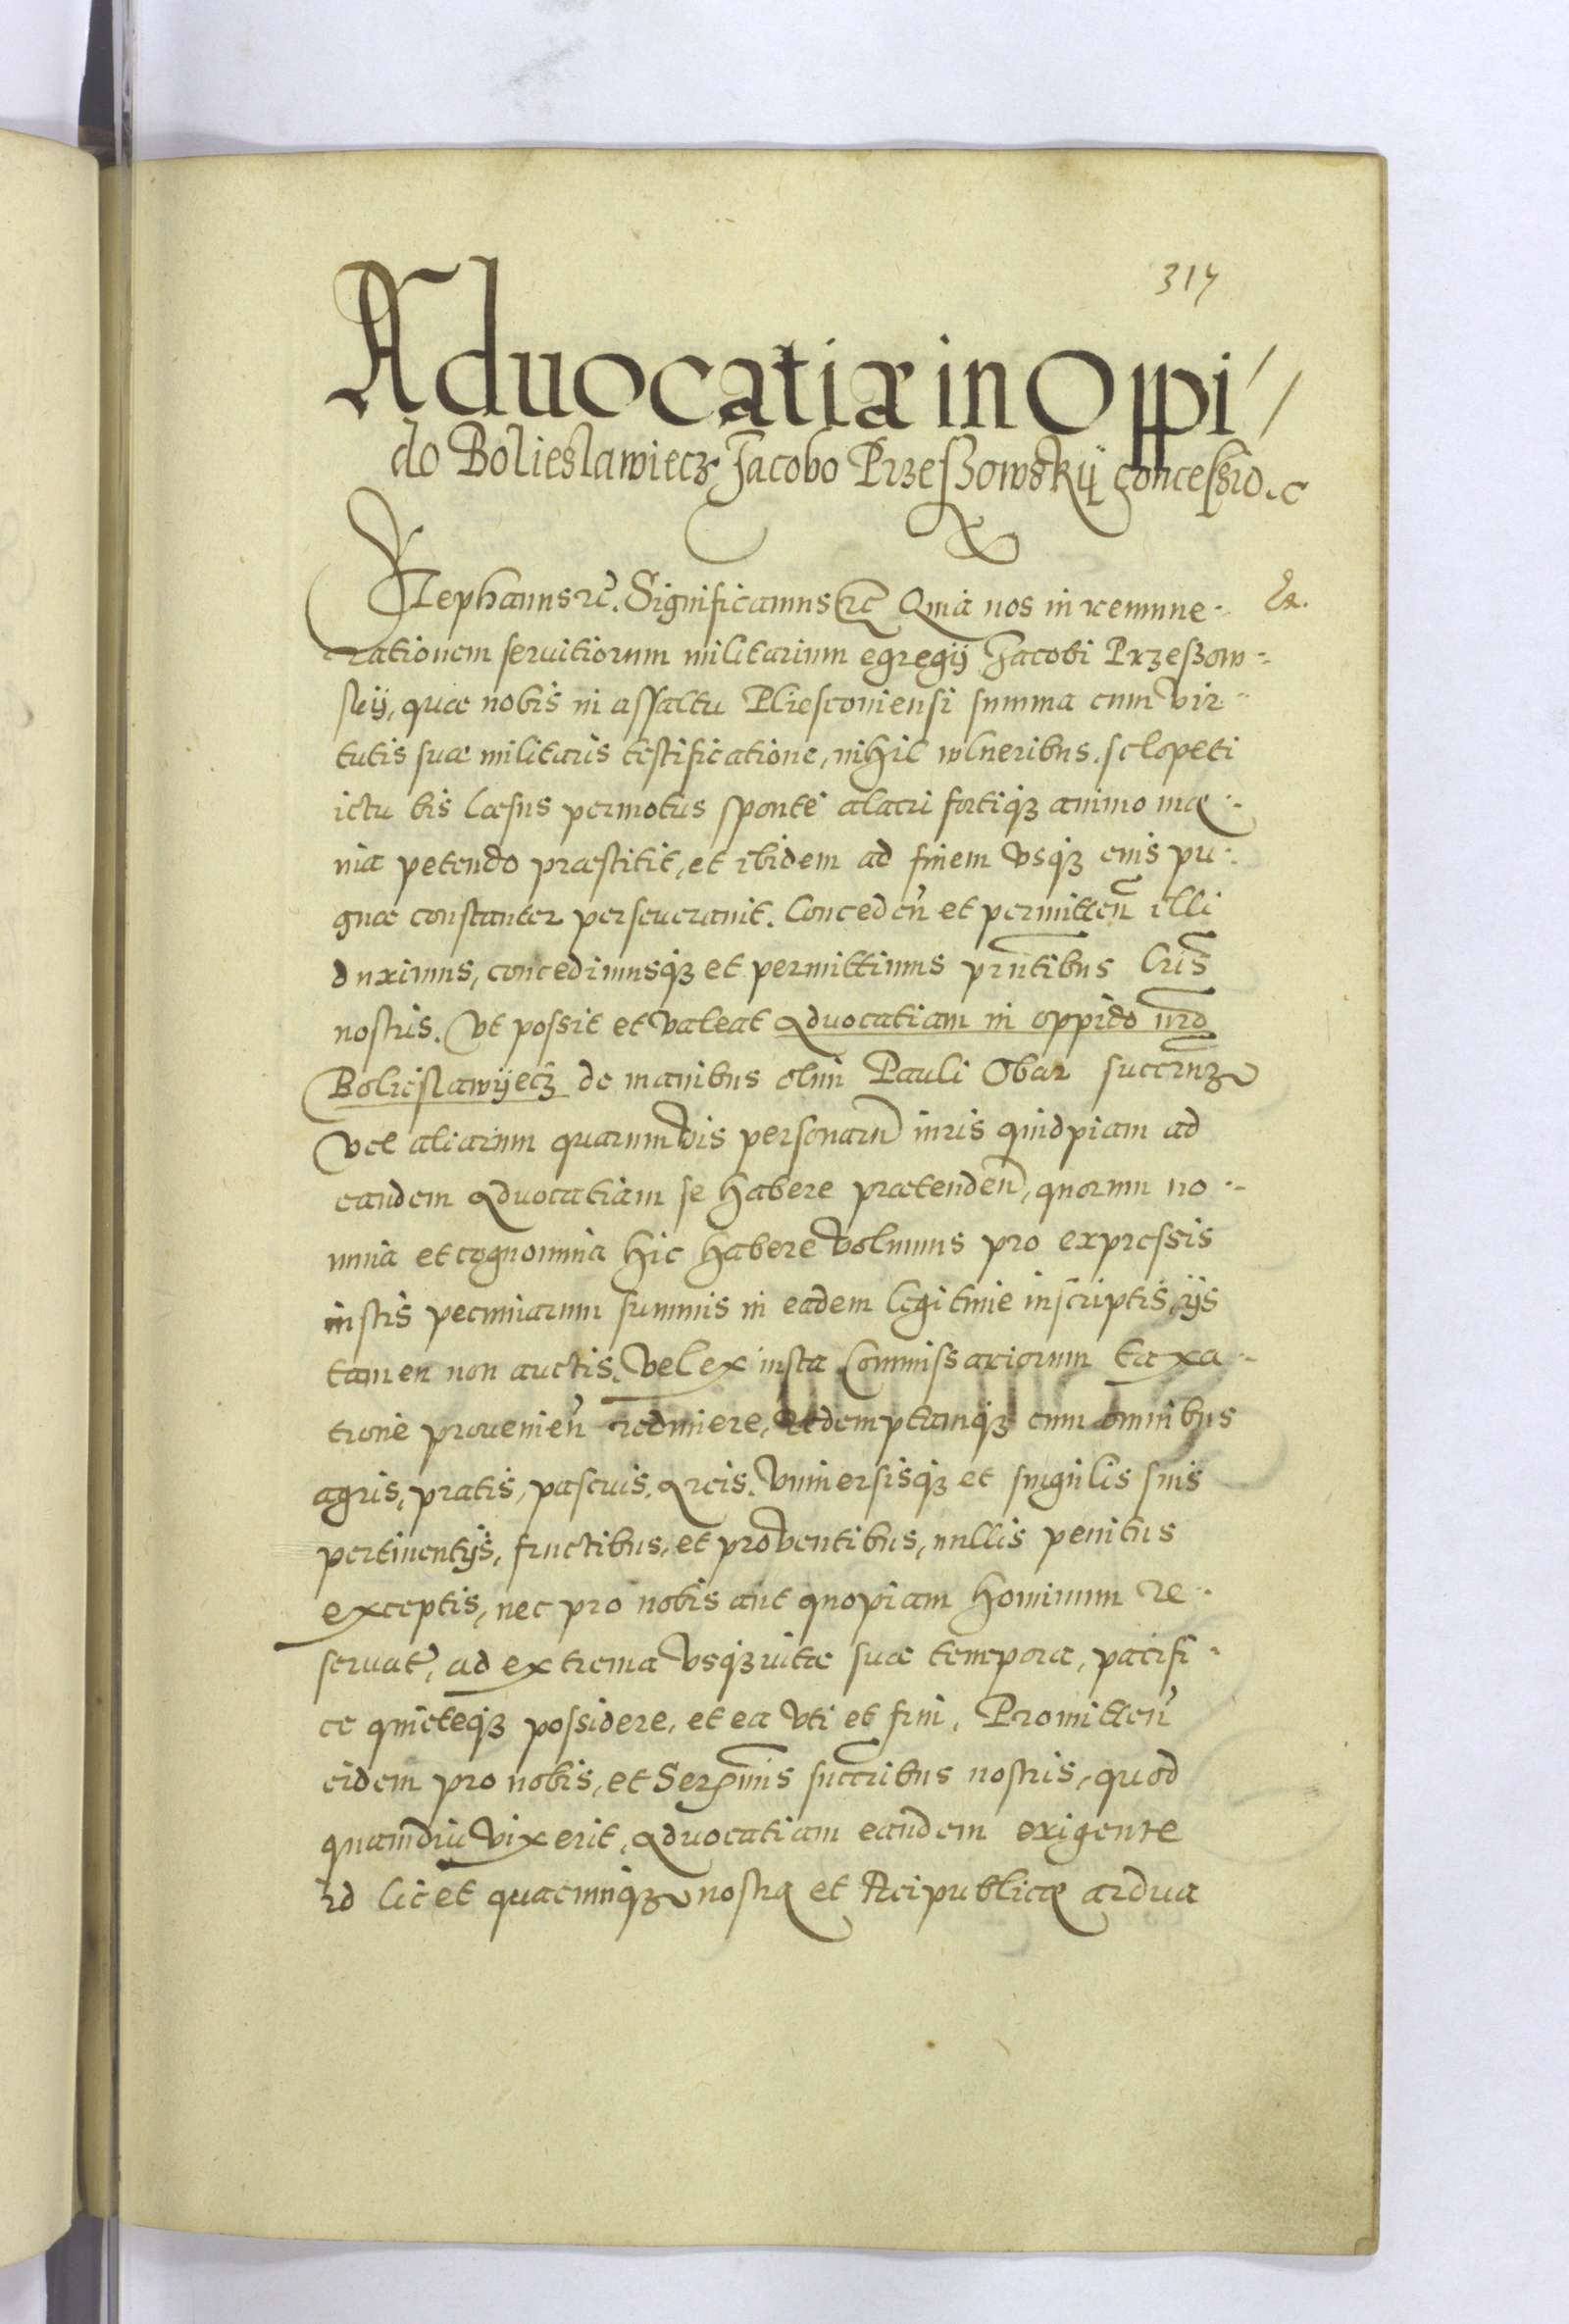 317
Aduocatiæ in Oppi//
do Bolieslawiecz Jacobo Przeszowskÿ concessio.
Stephanus rc̃. Significamus rc̃ Quia nos in remune-
rationem seruitiorum militarium egregij Jacobi Przeszow-
skij, quæ nobis in assaltu Pliesconiensi summa cum vir-
tutis suæ militaris testificatione, nihil vulneribus, sclopeti
ictu bis læsus permotus sponte alacri fortiqȝ animo mæ-
nia petendo præstitit, et ibidem ad finem vsqȝ eius pu-
gnæ constanter perseuerauit. Conceden̄ et permitten̄ illi
duximus, concedimusqȝ et permittimus pr̃ntibus lr̃is
nostris. Vt possit et valeat Aduocatiam in oppido nr̃o
Bolieslawÿecȝ de manibus olim Pauli Obar succr̃nȝ
vel aliarum quarumvis personarū iuris quidpiam ad
eandem Aduocatiam se habere prætenden̄, quorum no-
mina et cognomina hic habere volumus pro expressis
iustis pecuniarum summis in eadem legitime inscriptis, ijs
tamen non auctis. Vel ex iusta Commissariorum taxa-
tione prouenien̄ redimere, Redemptamqȝ cum omnibus
agris, pratis, pascuis, Areis, Vniuersisqȝ et singulis suis
pertinentijs, fructibus, et proventibus, nullis penitus
exceptis, nec pro nobis aut quopiam hominum re-
seruat̃, ad extrema vsqȝ vitæ suæ tempora, pacifi-
ce quieteqȝ possidere, et ea vti et frui. Promitten̄
eidem pro nobis, et Ser̃mis succr̃ibus nostris, quod
quamdiu vixerit, Aduocatiam eandem exigente
id licet quacunqȝ nostra et Reipublicæ ardua